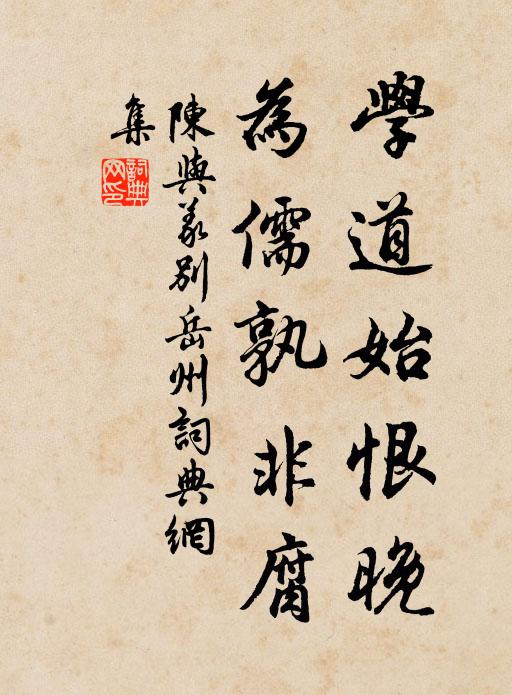 學道始恨晚
為儒孰非腐
陳與義別岳州詞典網
集
詞典網印